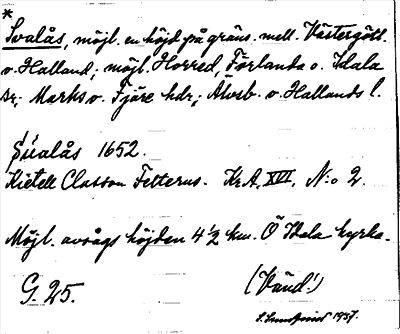 *
Svalås, möjl. en höjd på gräns. mell. Västergötl.
o. Halland; möjl. Horred, Förlanda o. Idala
sr; Marks o. Fjäre hdr; Älvsb. o. Hallands l.
Sualås 1652.
Kietell Classon Felterus. Kr.A. XVII, N:o 2.
Möjl. avsågs höjden 4 1/2 km. Ö Idala kyrka.
G. 25.
(Vänd!)
1937.